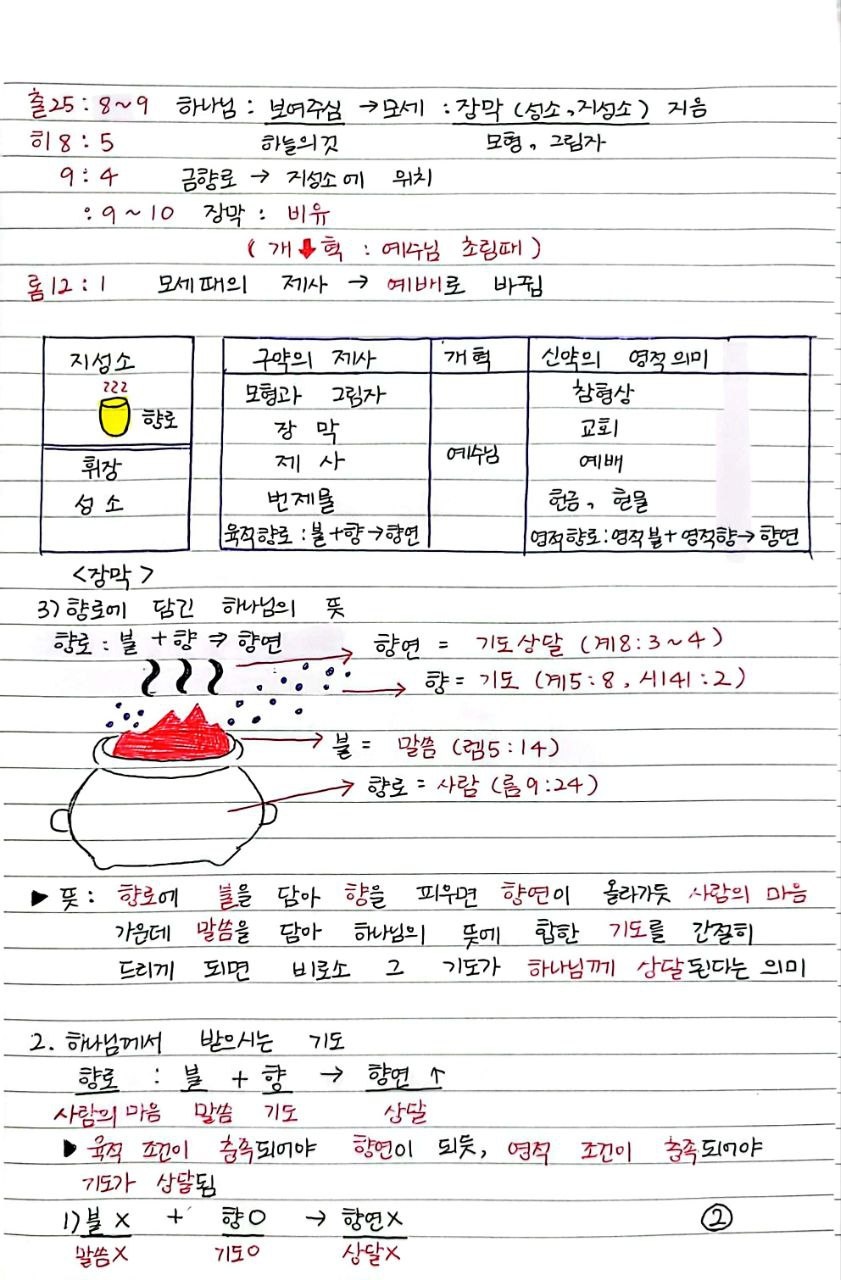 출25 : 8~9 하나님 : 보여주심 → 모세 : 장막 (성소, 지성소) 지음
히8 : 5 하늘의것 모형, 그림자
9 : 4 금향로 → 지성소에 위치
: 9~10 장막 : 비유
( 개↓혁 : 예수님 초림때 )
롬12 : 1 모세때의 제사 → 예배로 바뀜
지성소
향로
휘장
성소
<장막>
구약의 제사 개혁 신약의 영적의미
모형과 그림자 참형상
장 막 교회
제 사 예수님 예배
번제물 헌금, 헌물
육적향로 : 불+향→향연 영적향로 : 영적불+영적향→향연
3) 향로에 담긴 하나님의 뜻
향로 : 불 + 향 ⇒ 향연
향연 = 기도상달 (계8 : 3~4)
향 = 기도 (계5 : 8, 시141 : 2)
불 = 말씀 (렘5 : 14)
향로 = 사람 (롬9 : 24)
▶ 뜻 : 향로에 불을 담아 향을 피우면 향연이 올라가듯 사람의 마음
가운데 말씀을 담아 하나님의 뜻에 합한 기도를 간절히
드리게 되면 비로소 그 기도가 하나님께 상달된다는 의미
2. 하나님께서 받으시는 기도
향로 : 불 + 향 → 향연 ↑
사람의 마음 말씀 기도 상달
▶ 육적 조건이 충족되어야 향연이 되듯, 영적 조건이 충족되어야
기도가 상달됨
1) 불 X + 향 O → 향연 X
말씀 X 기도 O 상달 X
②